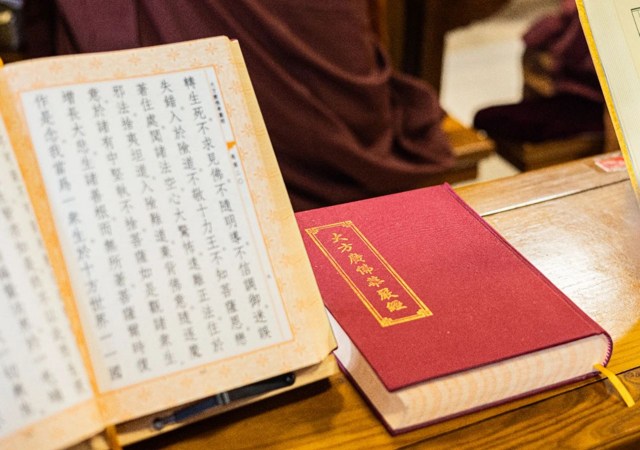 轉生死不求見佛不隨明導不信調御迷誤
失錯入於險道不敬十力王不知菩薩恩戀
著住處聞諸法空心大驚怖遠離正法住於
邪法捨夷坦道入險難道棄背佛意隨逐魔
意於諸有中堅執不捨菩薩如是觀諸眾生
增長大悲生諸善根而無所著菩薩爾時復
作是念我當為一眾生於十方世界一一國
大方廣佛華嚴經